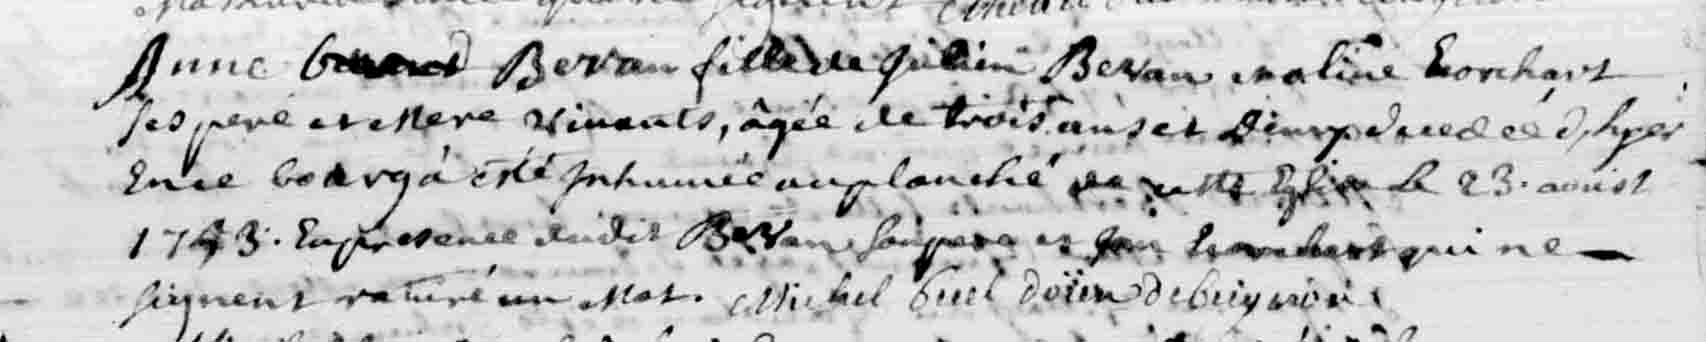 Anne Bevan fille de Julien Bevan et aline Korchart
ses pere et Mere vivants, âgée de trois ans et Demy decedeé d'hyer
En ce bourg á esté Inhumée au planché de cette Eglise Le 23. aoust
1743. En presence dudit Bevan son pere et Jan Korchart qui ne
signent raturé un Mot. Michel